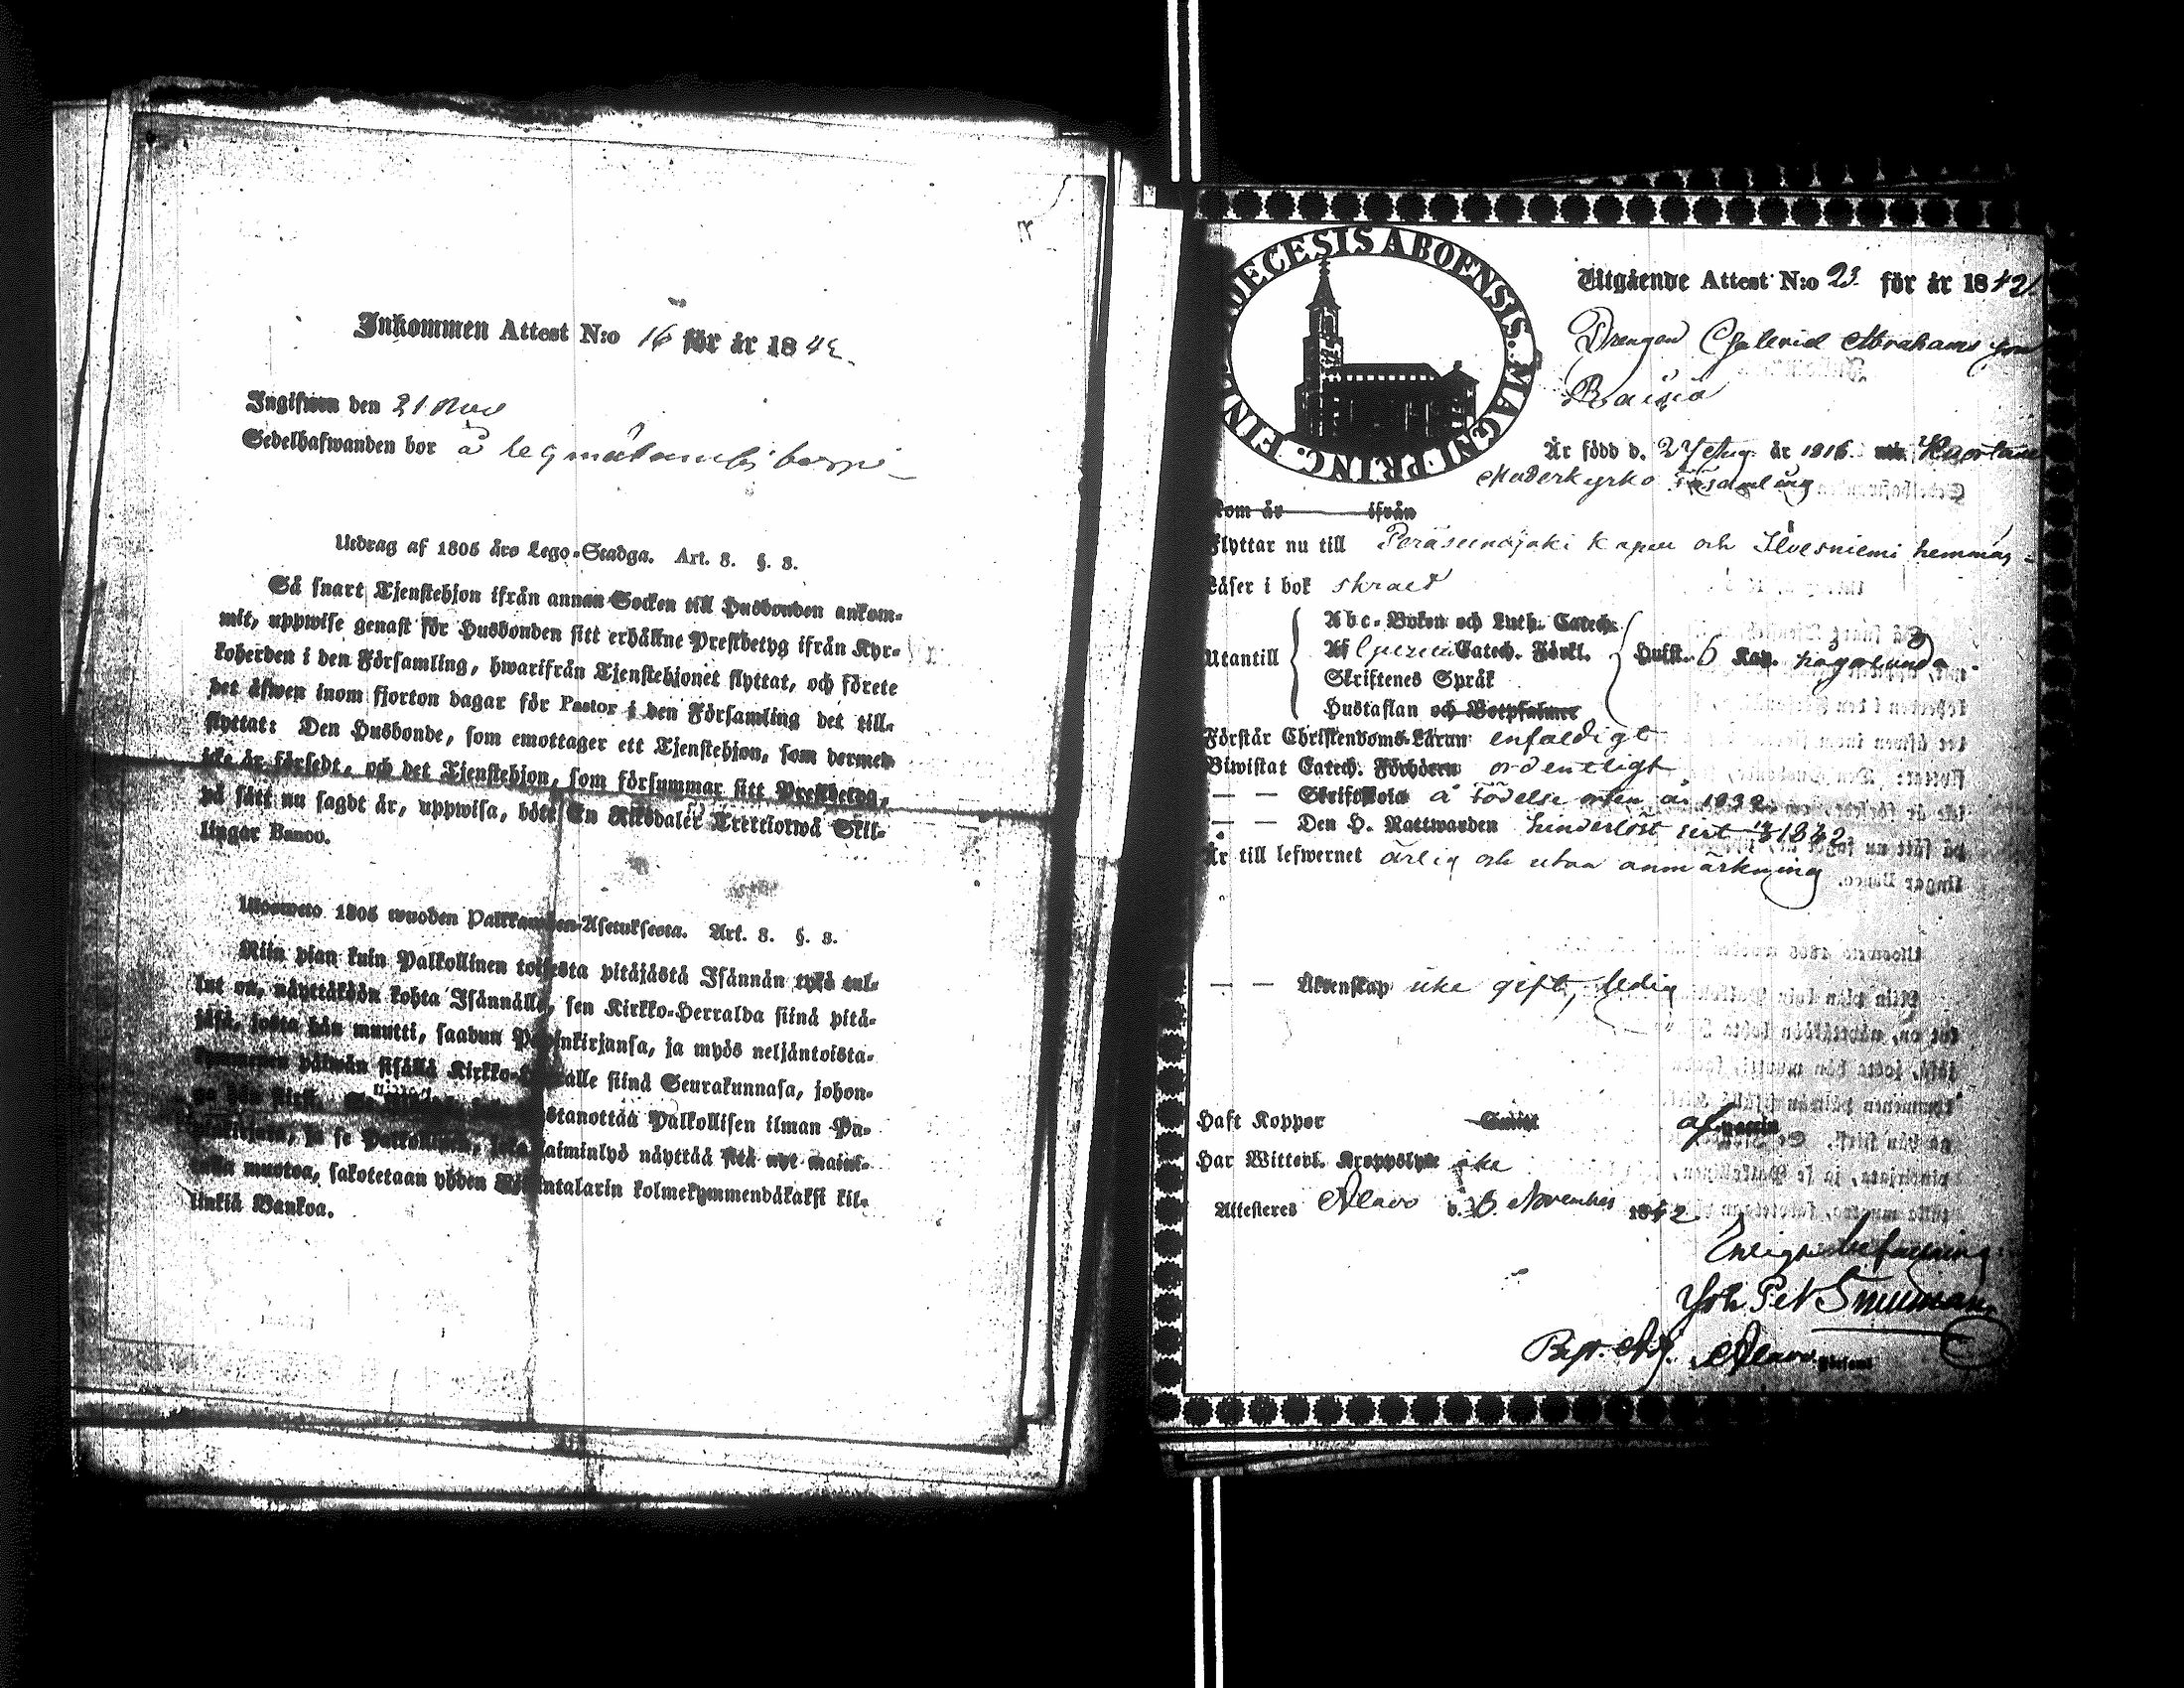 Inkommen Attest N:o 16 för år 1842.
Ingifwen den 21 Nov
Sedelhafwanden bor å
Utdrag af 1805 års Lego-Stadga. Art. 8. §. 3.
Så snart Tjenstehjon ifrån annan Socken till Husbonden ankom-
mit, uppwise genast för Husbonden sitt erhållne Prestbetyg ifrån Kyr-
koherden i den Församling, hwarifrån Tjenstehjonet flyttat, och förete
det äfwen inom fjorton dagar för Pastor i den Församling det till-
flyttat: Den Husbonde, som emottager ett Tjenstehjon, som dermed
icke är försedt, och det Tjenstehjon, som försummar sitt Prestbetyg,
på sätt nu sagdt är, uppwisa, böte En Riksdaler Trettiotwå Skil-
lingar Banco.
Ulosweto 1805 wuoden Palkkawäen-Asetuksesta. Art. 8. §. 3.
Niin pian kuin Palkollinen toisesta pitäjästä Isännän tykö tul-
lut on, näyttäköön kohta Isännälle, sen Kirkko-Herralda siinä pitä-
jäsä, josta hän muutti, saadun Papinkirjansa, ja myös neljäntoista-
kymmenen päiwän sisällä Kirkko-Herralle siinä Seurakunnasa, johon-
ga hän siirsi. wastanottaa Palkollisen ilman Pa-
pinkirjata, ja se Palkollinen, joka laiminlyö näyttää sitä nyt maini-
tulla muotoa, sakotetaan yhden Riksintalarin kolmekymmendäkaksi kil-
linkiä Bankoa.
DIECESIS ABOENSIS. MAGNI PRINC. FINL.
Utgående Attest N:o 23. för år 1842
Drengen Gabriel Abrahams son
Raisio
Är född d. 27 Aug. år 1816. Kuortane
Moderkyrko församling
Kom år ifrån
Flyttar nu till Peräseinäjoki Kapell och Ilvesniemi hemman
Läser i bok skralt
Utantill
Abc-Boken och Luth. Catech.
Af Catech. Förkl. Hust. 6 Kap. någorlunda
Skriftenes Språk
Hustaflan och Botpsalmer
Förstår Christendoms-Läran enfaldigt
Biwistat Catech. Förhören ordentligt
— — Skriftskola å födelse orten år 1832
— — Den H. Nattwarden hinderlöst sist 1842
Är till lefwernet ärlig och utan anmärkning
— — Äktenskap icke gift, ledig
Haft Koppor af
Har Witterl. Kroppslyte icke
Attesteres Alavo d. 8. November 1842
Enligt befallning:
Joh Pet Snellman
Alavo Församl